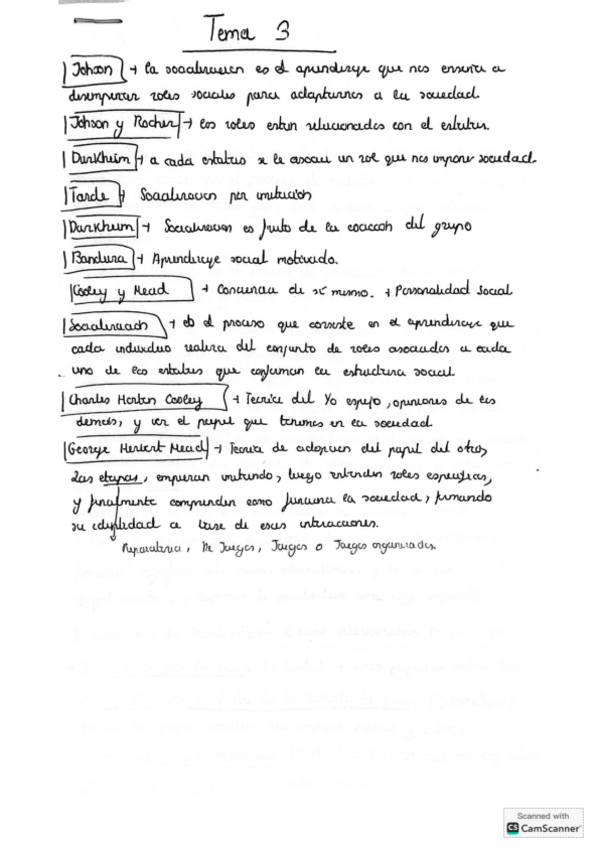 Tema 3
Johson → la socalización es el aprendizaje que nos enseña a
desempeñar roles sociales para adaptarnos a la sociedad.
Johson y Rocher → los roles estan relacionados con el estatus.
Durkheim → a cada estatus se le asocau un rol que nos impone sociedad.
Tarde → Socalización por imitación
Durkheim → Socialización es fruto de la coacción del grupo
Bandura → Aprendizaje social motivado.
Cooley y Mead → Conciencia de sí mismo. → Personalidad Social
Socialización → es el proceso que consiste en el aprendizaje que
cada individuo realiza del conjunto de roles asociados a cada
uno de los estatus que conforman la estructura social.
Charles Horton Cooley → Teoría del Yo espejo, opiniones de los
demás, y ver el papel que tenemos en la sociedad.
George Herbert Mead → Teoría de adopción del papel del otro,
Las etapas, empiezan imitando, luego entienden roles específicos,
y finalmente comprenden como funciona la sociedad, formando
su identidad a base de esas interacciones.
Preparatoria, De Juegos, Juegos o Juegos organizados.
Scanned with
CS CamScanner